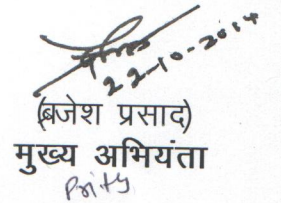 22-10-2014
(ब्रजेश प्रसाद)
मुख्य अभियंता
Prity